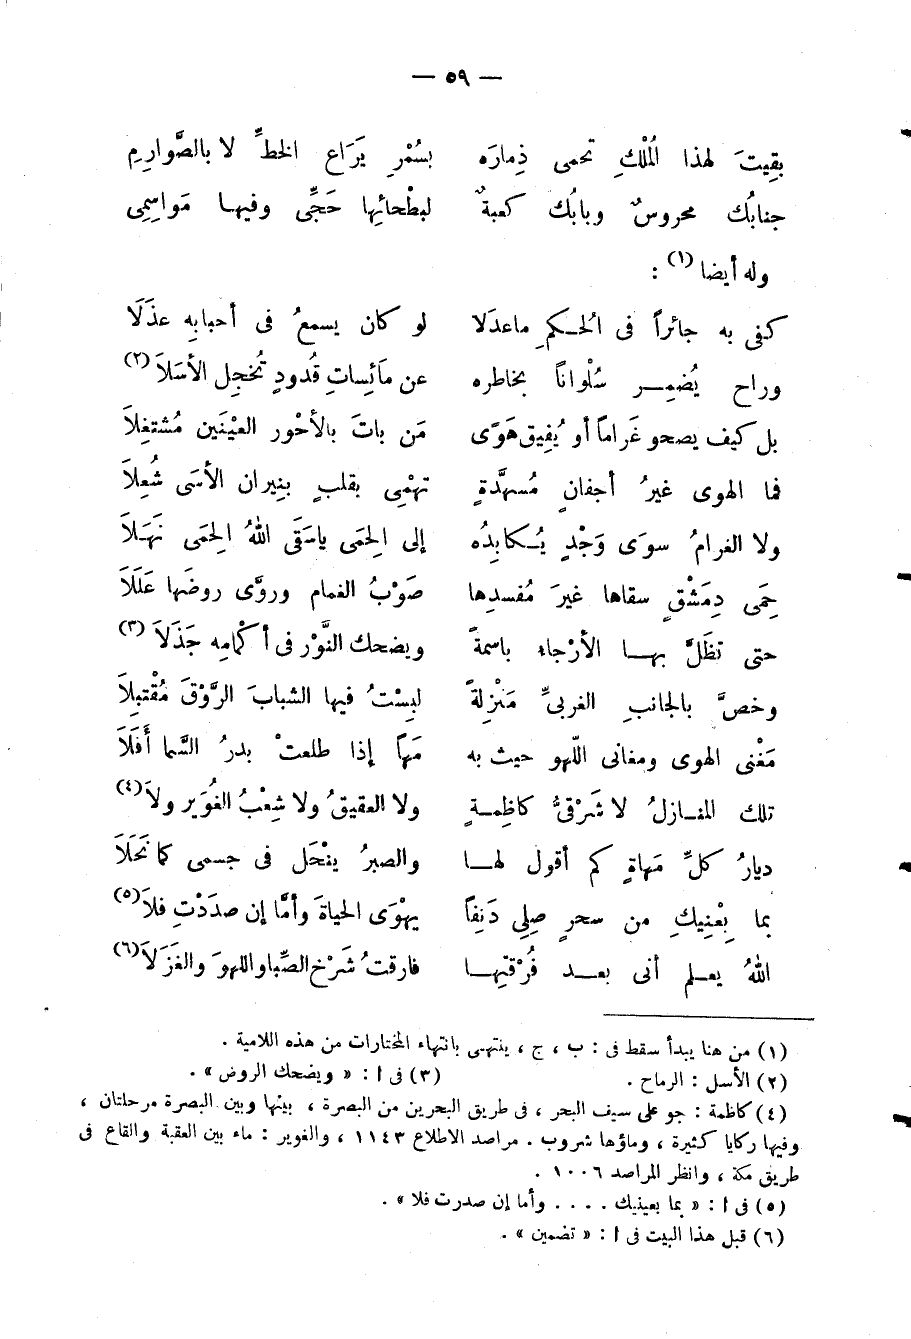 — ٥٩ —
بقِيتَ لهذا المُلْكِ تحمى ذِمارَه بسُمْرِ يَرَاعِ الخطِّ لا بالصَّوارِمِ
جنابُك محروسٌ وبابُك كعبةٌ لبطْحائِها حَجِّى وفيها مَواسِمِى
وله أيضا (١) :
كفى به جائراً فى الحُـكمِ ماعدَلَا لو كان يسمعُ فى أحبابِه عذَلَا
وراح يُضمِـر سُلْواناً بخاطره عن مَائِساتِ قُدودٍ تُخجِل الأسَلاَ (٢)
بل كيف يصحو غَراماً أو يُفِيق هَوًى مَن باتَ بالأحْور العيْنَين مُشتغِلاَ
فما الهوى غيرُ أجفانٍ مُسهَّدةٍ تهْمِى بقلبٍ بنِيران الأسَى شُعِلاَ
ولا الغرامُ سوَى وَجْدٍ يُـكابِدُه إلى الِحمَى ياسَقَى اللهُ الِحمَى نَهَلاَ
حِمَى دِمَشْقٍ سقاها غيرَ مُفسدِها صَوْبُ الغمام وروَّى روضَها عَلَلاَ
حتى تظَلَّ بهــا الأرْجاء باسمةً ويضحك النَّوْر فى أكمامِه جَذَلاَ (٣)
وخصَّ بالجانبِ الغربىِّ مَنْزِلةً لبِسْتُ فيها الشبابَ الرَّوْقَ مُقْتبِلاَ
مَغْنى الهوى ومغانى اللّهو حيث به مَهاً إذا طلعتْ بدرُ السَّما أَفَلاَ
تلك المنـازلُ لا شَرْقىُّ كاظِمـةٍ ولا العقيقُ ولا شِعْبُ الغُوَير ولاَ (٤)
ديارُ كلِّ مَهاةٍ كم أقول لهــا والصبرُ ينْحَل فى جسمى كما نَحَلاَ
بما بِعْنِيكِ من سحرٍ صِلِى دَنِفاً يهْوَى الحياةَ وأمَّا إن صدَدْتِ فلاَ (٥)
اللهُ يعـلم أنى بعــد فُرْقتِهـا فارقتُ شَرْخ الصِّبا واللهوَ والغزَلاَ (٦)
(١) من هنا يبدأ سقط فى : ب ، ج ، ينتهى بانتهاء المختارات من هذه اللامية .
(٢) الأسل : الرماح . (٣) فى ا : « ويضحك الروض » .
(٤) كاظمة : جو على سيف البحر ، فى طريق البحرين من البصرة ، بينها وبين البصرة مرحلتان ،
وفيها ركايا كثيرة ، وماؤها شروب . مراصد الاطلاع ١١٤٣ ، والغوير : ماء بين العقبة والقاع فى
طريق مكة ، وانظر المراصد ١٠٠٦ .
(٥) فى ا : « بما بعينيك . . . . وأما إن صدرت فلا » .
(٦) قبل هذا البيت فى ا : « تضمين » .